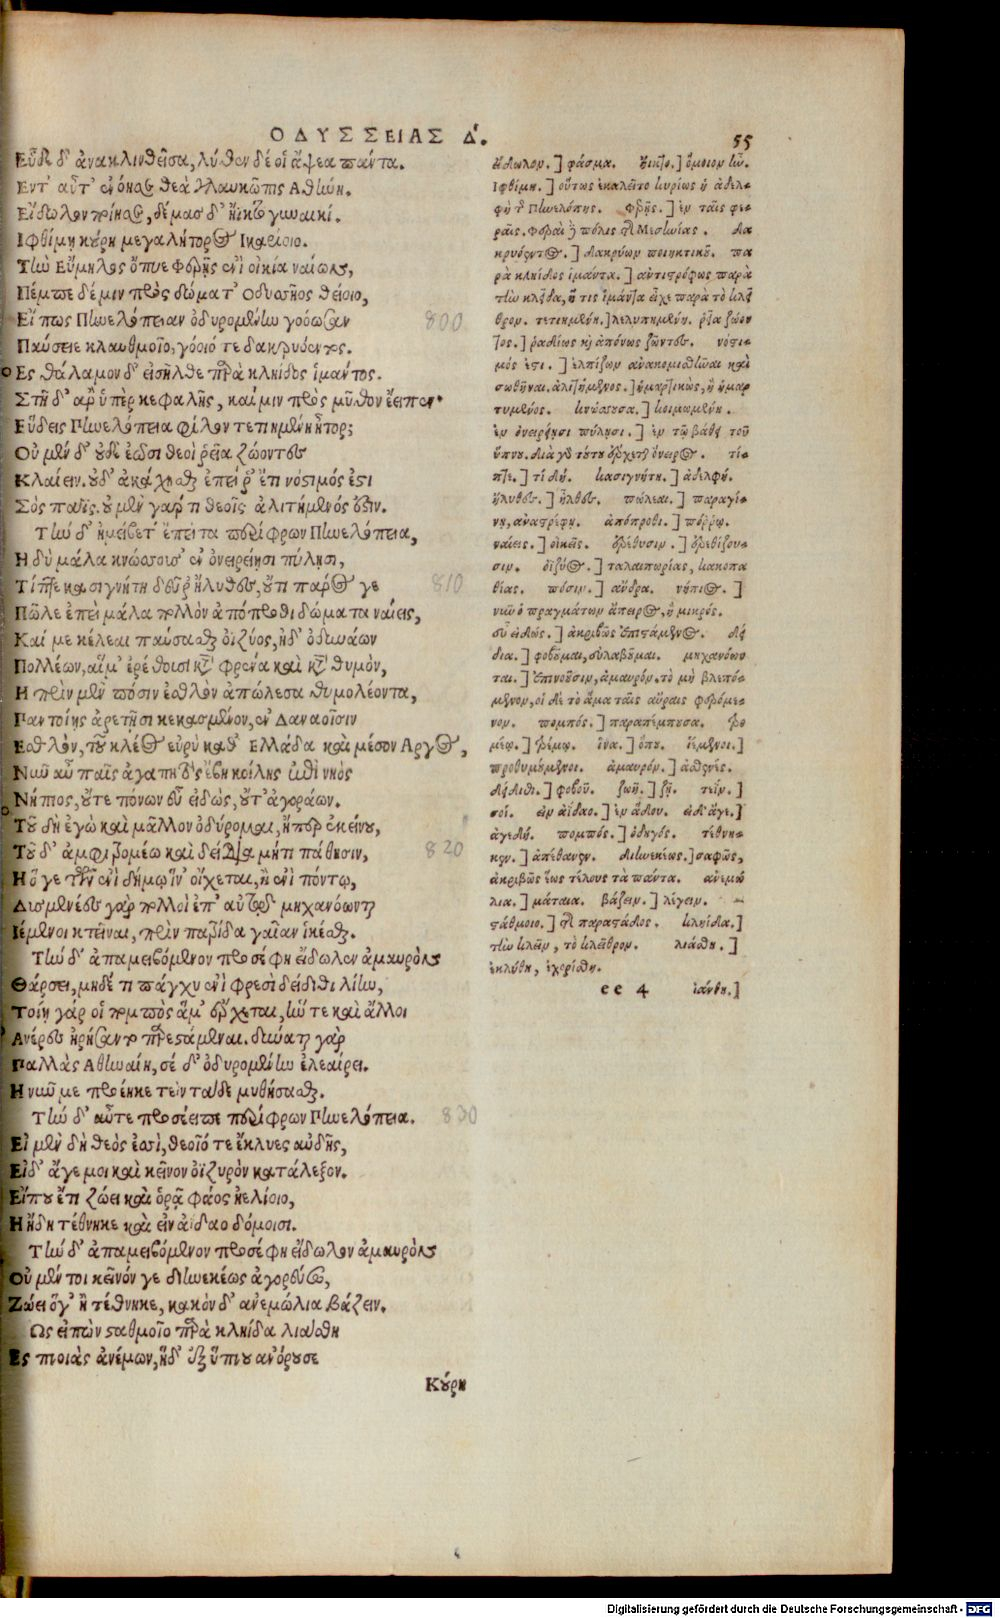 ΟΔΥΣΣΕΙΑΣ Δ. 55
Εὗδε δ' ἀνακλινθεῖσα, λύθεν δέ οἱ ἅψεα πάντα.
Ενθ' αὖτ' ἐνόησε θεὰ γλαυκῶπις Αθήνη.
Εἴδωλον ποίησε, δέμας δ' ἤϊκτο γυναικὶ.
Ιφθίμῃ κούρῃ μεγαλήτορος Ικαρίοιο.
Τὴν Εὔμηλος ὄπυιε Φερῇς ἐνὶ οἰκία ναίων,
Πέμπε δέ μιν πρὸς δώματ' Οδυσσῆος θείοιο,
Εἴ πως Πηνελόπειαν ὀδυρομένην γοόωσαν 800
Παύσειε κλαυθμοῖο, γόοιό τε δακρυόεντος.
Ες θάλαμον δ' εἰσῆλθε παρὰ κληῖδος ἱμάντος.
Στῆ δ' ἄρ ὑπὲρ κεφαλῆς, καί μιν πρὸς μῦθον ἔειπεν.
Εὕδεις Πηνελόπεια φίλον τετιημένη ἦτορ;
Οὐ μέν δ' οὐδὲ ἐῶσι θεοὶ ῥεῖα ζώοντες
Κλαίειν. οὐδ' ἀκάχησθαι ἐπεί ῥ' ἔτι νόστιμός ἐστι
Σὸς παῖς. οὐ μὲν γάρ τι θεοῖς ἀλιτήμενός ἐστιν.
Τὴν δ' ἠμείβετ' ἔπειτα περίφρων Πηνελόπεια,
Ηδὺ μάλα κνώσσουσ' ἐν ὀνειρείῃσι πύλῃσι,
Τίπτε κασιγνήτη δεῦρ' ἤλυθες, οὔτι πάρος γε 810
Πῶλε ἐπεὶ μάλα πολλὸν ἀπόπροθι δώματα ναίεις,
Καί με κέλεαι παύσασθαι ὀϊζύος, ἠδ' ὀδυνάων
Πολλέων, αἵ μ' ἐρέθουσι κατὰ φρένα καὶ κατὰ θυμὸν,
Η πρὶν μὲν πόσιν ἐσθλὸν ἀπώλεσα θυμολέοντα,
Παντοίῃς ἀρετῇσι κεκασμένον, ἐν Δαναοῖσιν
Εσθλὸν, τοῦ κλέος εὐρὺ καθ' Ελλάδα καὶ μέσον Αργος,
Νῦν αὖ παῖς ἀγαπητὸς ἔβη κοίλης ἐπὶ νηὸς
Νήπιος, οὔτε πόνων εὖ εἰδὼς, οὔτ' ἀγοράων.
Τοῦ δὴ ἐγὼ καὶ μᾶλλον ὀδύρομαι, ἤπερ ἐκείνου,
Τοῦ δ' ἀμφιτρομέω καὶ δείδια μήτι πάθησιν, 820
Η ὅ γε τῶν ἐνὶ δήμῳ ἵν' οἴχεται, ἢ ἐνὶ πόντῳ,
Δυσμενέες γὰρ πολλοὶ ἐπ' αὐτῷ μηχανόωνται
Ιέμενοι κτεῖναι, πρὶν πατρίδα γαῖαν ἱκέσθαι.
Τὴν δ' ἀπαμειβόμενον προσέφη εἴδωλον ἀμαυρὸν
Θάρσει, μηδέ τι πάγχυ ἐνὶ φρεσὶ δείδιθι λίην,
Τοίη γάρ οἱ πομπὸς ἅμ' ἔρχεται, ἥν τε καὶ ἄλλοι
Ανέρες ἠρήσαντο παρεστάμεναι. δύναται γὰρ
Παλλὰς Αθηναίη, σέ δ' ὀδυρομένην ἐλεαίρει.
Η νῦν με προέηκε τεῒν τάδε μυθήσασθαι.
Τὴν δ' αὖτε προσέειπε περίφρων Πηνελόπεια. 830
Εἰ μὲν δὴ θεὸς ἐσσὶ, θεοῖό τε ἔκλυες αὐδῆς,
Εἰδ' ἄγε μοι καὶ κεῖνον ὀϊζυρὸν κατάλεξον.
Εἴπου ἔτι ζώει καὶ ὁρᾷ φάος ἠελίοιο,
Η ἤδη τέθνηκε καὶ εἰν ἀΐδαο δόμοισι.
Τὴν δ' ἀπαμειβόμενον προσέφη εἴδωλον ἀμαυρὸν
Οὐ μέν τοι κεῖνόν γε διηνεκέως ἀγορεύσω,
Ζώει ὅγ' ἢ τέθνηκε, κακὸν δ' ἀνεμώλια βάζειν.
Ως εἰπὼν σταθμοῖο παρὰ κληίδα λιάσθη
Ες πνοιὰς ἀνέμων, ἡ δ' ἐξ ὕπνου ἀνόρουσε
Κούρη
εἴδωλον.] φάσμα. ἤϊκτο.] ὅμοιον ἦν.
Ιφθίμη.] οὕτως ἐκαλεῖτο κυρίως ἡ ἀδελ-
φὴ τῆς Πηνελόπης. Φερῇς.] ἐν ταῖς φε-
ραῖς. Φεραὶ δὲ πόλις τῆς Μεσσηνίας. δα
κρυόεντος.] δακρύων ποιητικοῦ. πα
ρὰ κληΐδος ἱμάντα.] ἀντιστρόφως παρὰ
τὴν κλεῖδα, ἥ τις ἱμάντα εἶχε παρὰ τὸ κλεῖ
θρον. τετιημένη.] λελυπημένη. ῥεῖα ζώον
τες.] ῥαδίως καὶ ἀπόνως ζῶντες. νόστι-
μός ἐστι.] ἐλπίζων ἀνακομισθῆναι καὶ
σωθῆναι. ἀλιτήμενος.] ἡμαρτικὼς, ἢ ἡμαρ
τημένος. κνώσσουσα.] κοιμωμένη.
ἐν ὀνειρείησι πύλησι.] ἐν τῷ βάθει τοῦ
ὕπνου. διὰ γὰρ τούτου ἔρχεται ὄνειρος. τί-
πτε.] τί δή. κασιγνήτη.] ἀδελφή.
ἤλυθες.] ἦλθες. πώλεαι.] παραγί-
νῃ, ἀναστρέφῃ. ἀπόπροθι.] πόρρω.
ναίεις.] οἰκεῖς. ἐρέθουσιν.] ἐρεθίζου-
σιν. ὀϊζύος.] ταλαιπωρίας, κακοπα
θίας. πόσιν.] ἄνδρα. νήπιος.]
νῦν ὁ πραγμάτων ἄπειρος, ἢ μικρός.
εὖ εἰδώς.] ἀκριβῶς ἐπιστάμενος. δεί
δια.] φοβοῦμαι, εὐλαβοῦμαι. μηχανόων
ται.] ἐπινοοῦσιν, ἀμαυρόν. τὸ μὴ βλεπό-
μενον, οἱ δὲ τὸ ἅμα ταῖς αὔραις φερόμε-
νον. πομπός.] παραπέμπουσα. τρο
μέω.] τρέμω. ἵνα.] ὅπου. ἱέμενοι.]
προθυμούμενοι. ἀμαυρόν.] ἀσθενές.
δείδιθι.] φοβοῦ. ζωῆ.] ζῇ. τεΐν.]
σοί. εἰν ἀΐδαο.] ἐν ᾅδου. εἰδ' ἄγε.]
ἄγε δή. πομπός.] ὁδηγός. τέθνη-
κεν.] ἀπέθανεν. διηνεκέως.] σαφῶς,
ἀκριβῶς ἕως τέλους τὰ πάντα. ἀνεμώ
λια.] μάταια. βάζειν.] λέγειν.
στάθμοιο.] τῆς παραστάδος. κληίδα.]
τὴν κλεῖν, τὸ κλεῖθρον. λιάσθη.]
ἐκλύθη, ἐχωρίσθη.
ee 4 ἰάνθη.]
Digitalisierung gefördert durch die Deutsche Forschungsgemeinschaft - DFG